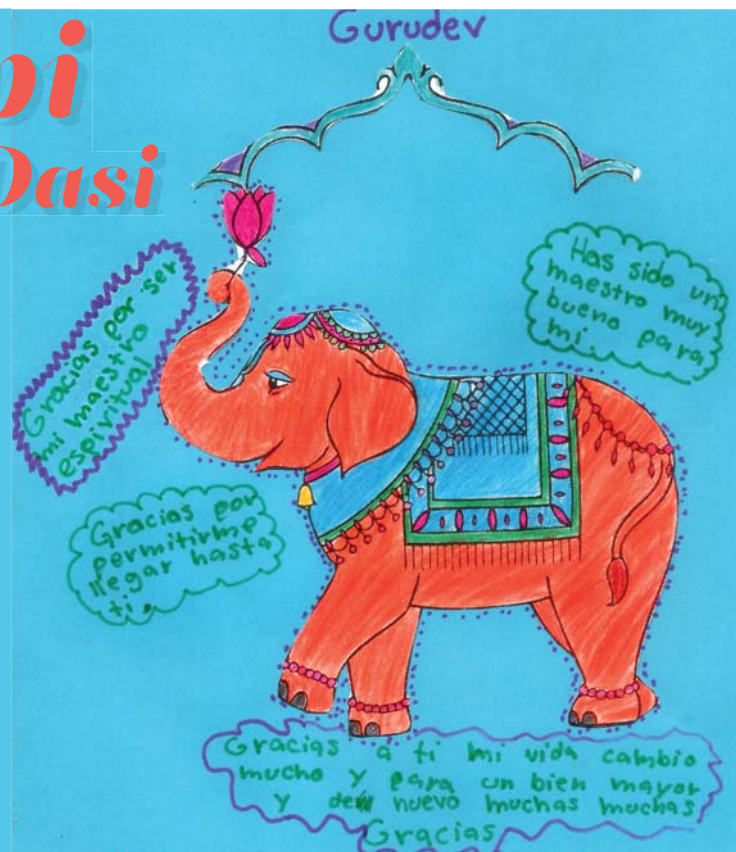 Gurudev
pi
Dasi
Gracias por ser
mi maestro
espiritual
Has sido un
maestro muy
bueno para
mi.
Gracias por
permitirme
llegar hasta
ti.
Gracias a ti mi vida cambio
mucho y para un bien mayor
y de nuevo muchas muchas
Gracias